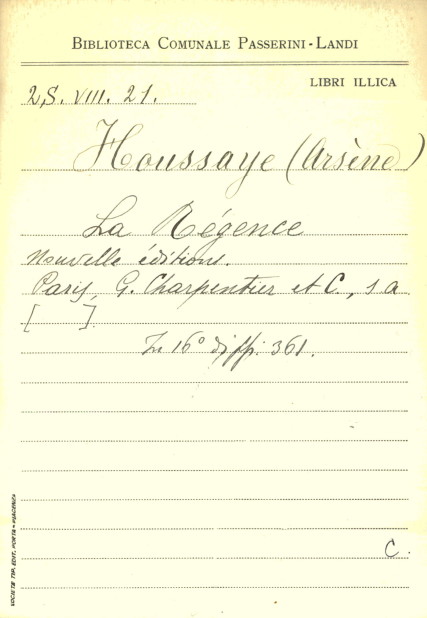 BIBLIOTECA COMUNALE PASSERINI-LANDI
LIBRI ILLICA
2,S. VIII. 21.
Houssaye (Arsène)
La Régence
Nouvelle éditions.
Paris, G. Charpentier et C., s a
[ ].
In 16° di pp. 361.
C.
SOCIETÀ TIP. EDIT. PORTA - PIACENZA